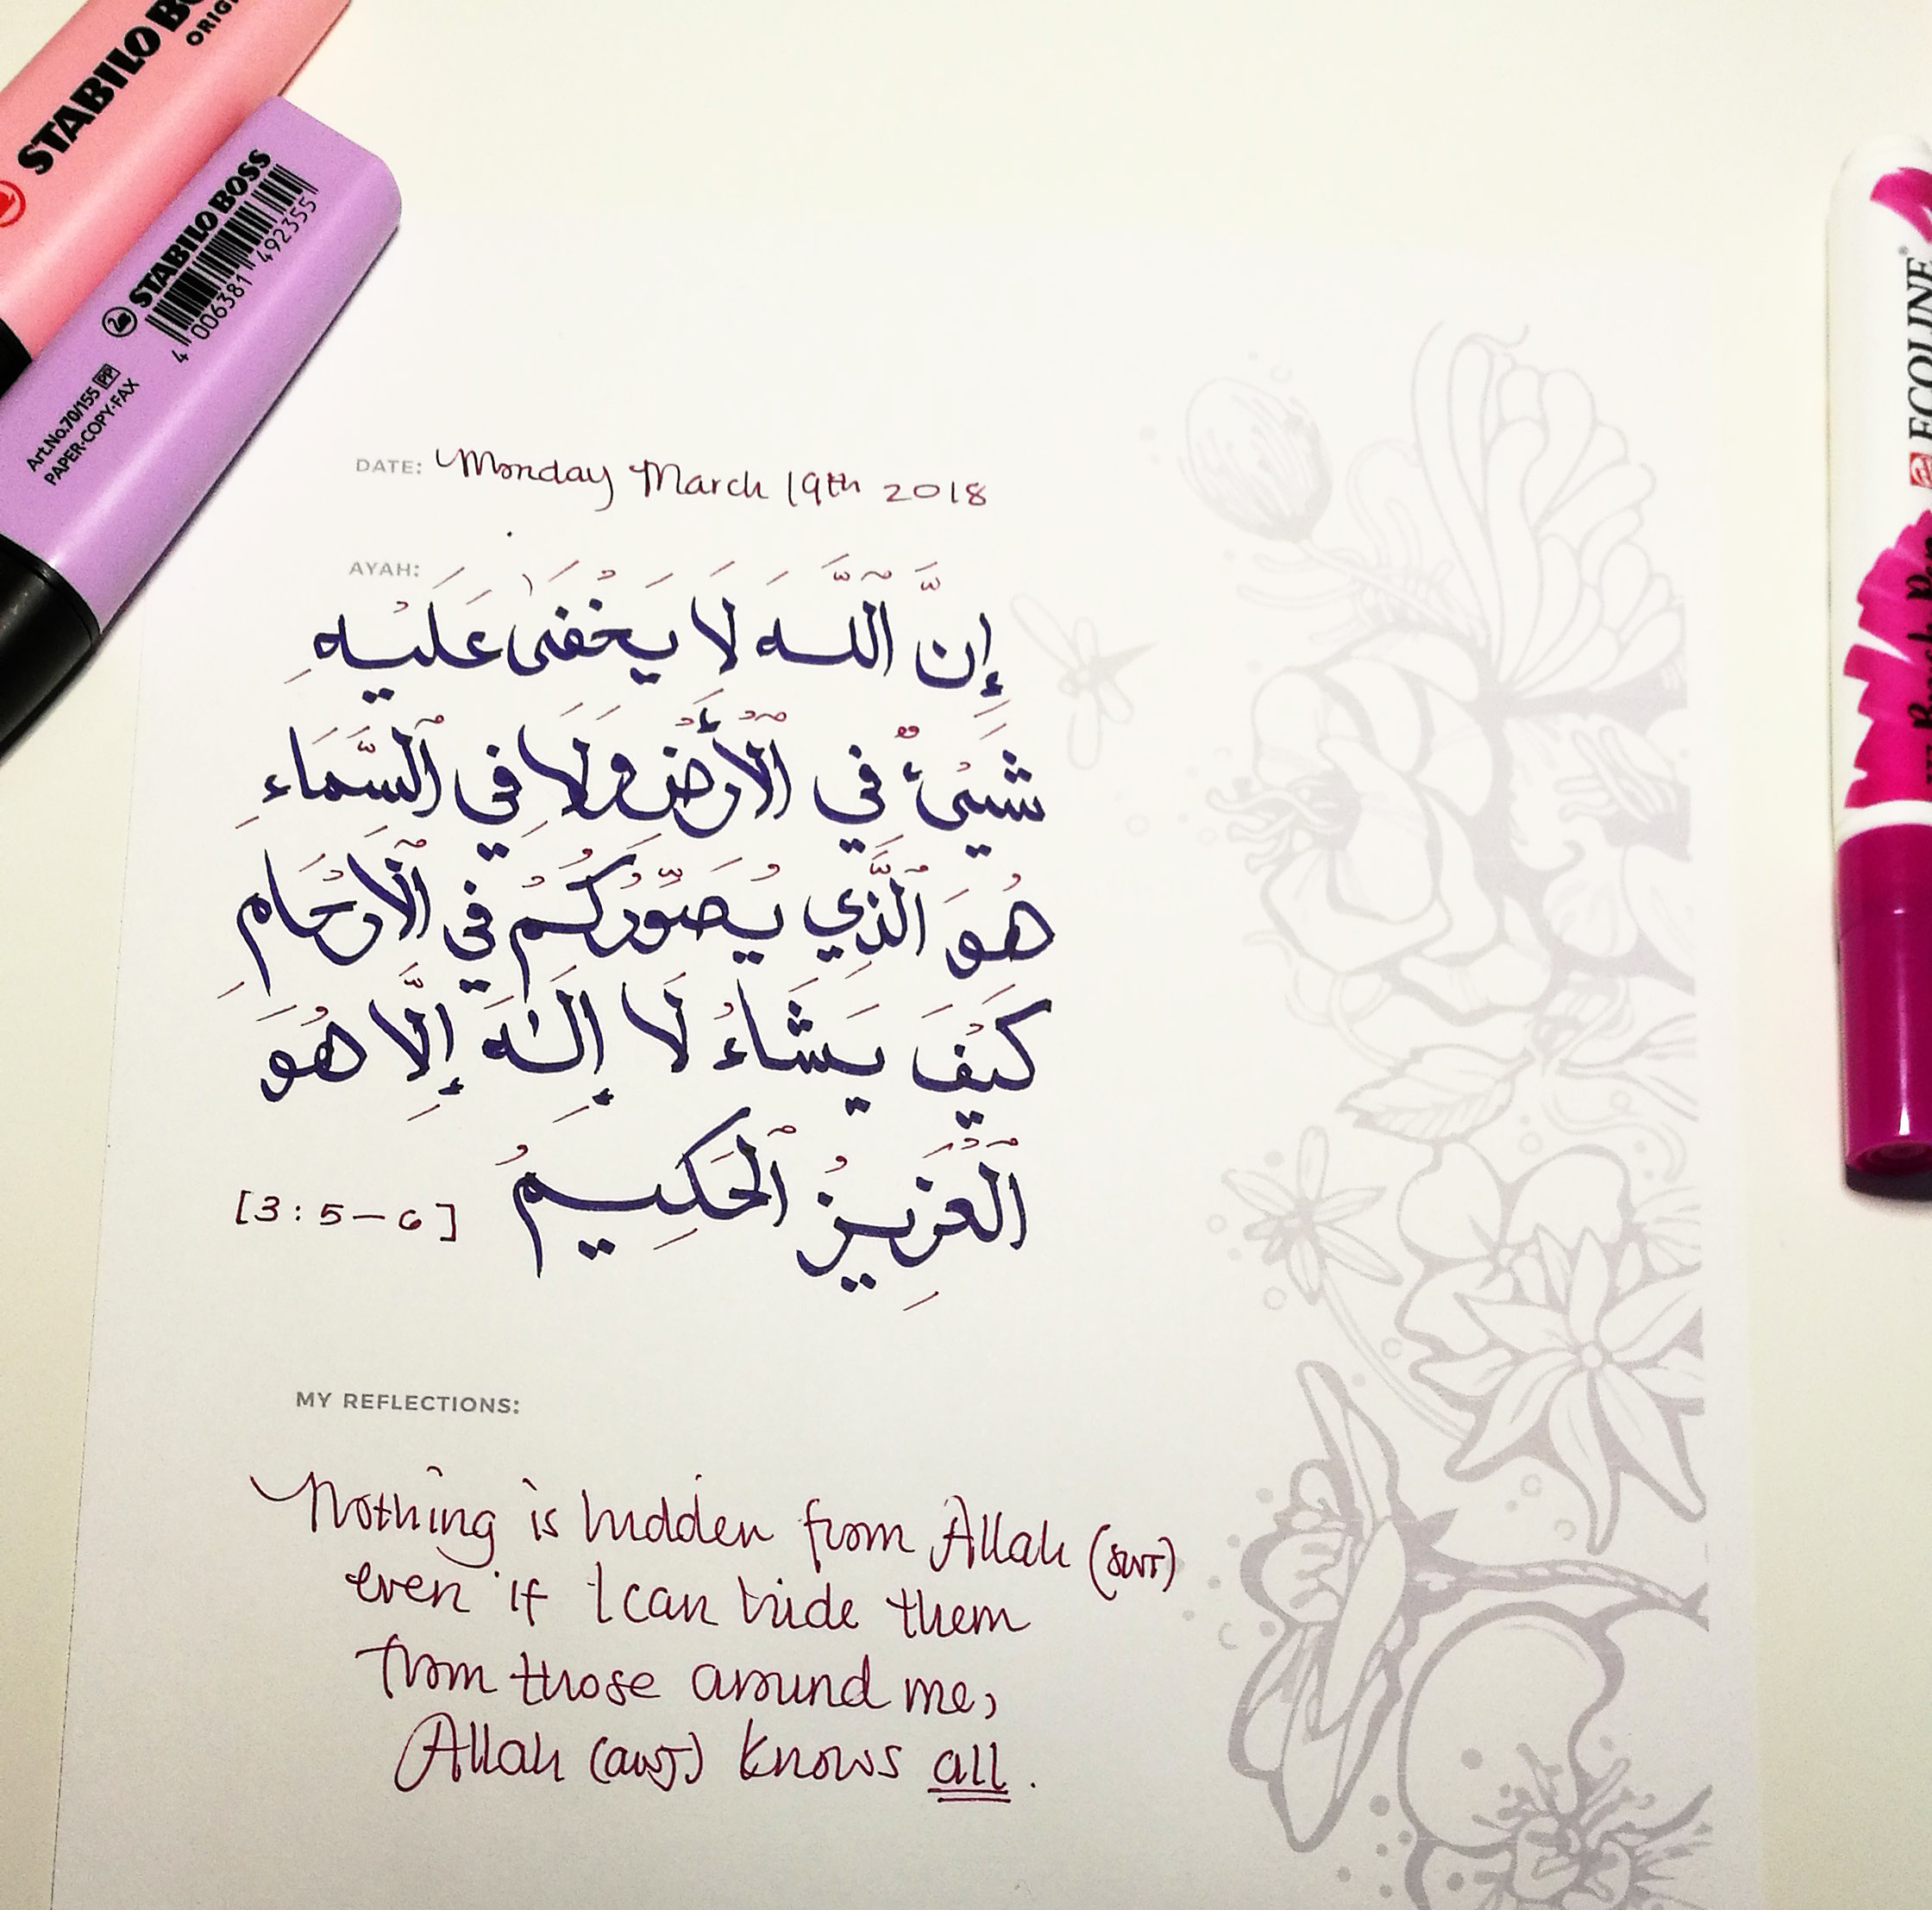 STABILO BO
ORIG
STABILO BOSS
4 006381 492355
Art.No.70/155 PP
PAPER·COPY·FAX
ECOLINE
Brush Pen
DATE: Monday March 19th 2018
AYAH:
إِنَّ ٱللَّهَ لَا يَخْفَىٰ عَلَيْهِ
شَيْءٌ فِي ٱلْأَرْضِ وَلَا فِي ٱلسَّمَاءِ
هُوَ ٱلَّذِي يُصَوِّرُكُمْ فِي ٱلْأَرْحَامِ
كَيْفَ يَشَاءُ لَا إِلَٰهَ إِلَّا هُوَ
ٱلْعَزِيزُ ٱلْحَكِيمُ [3:5-6]
MY REFLECTIONS:
Nothing is hidden from Allah (swt)
even if I can hide them
from those around me,
Allah (awj) knows all.